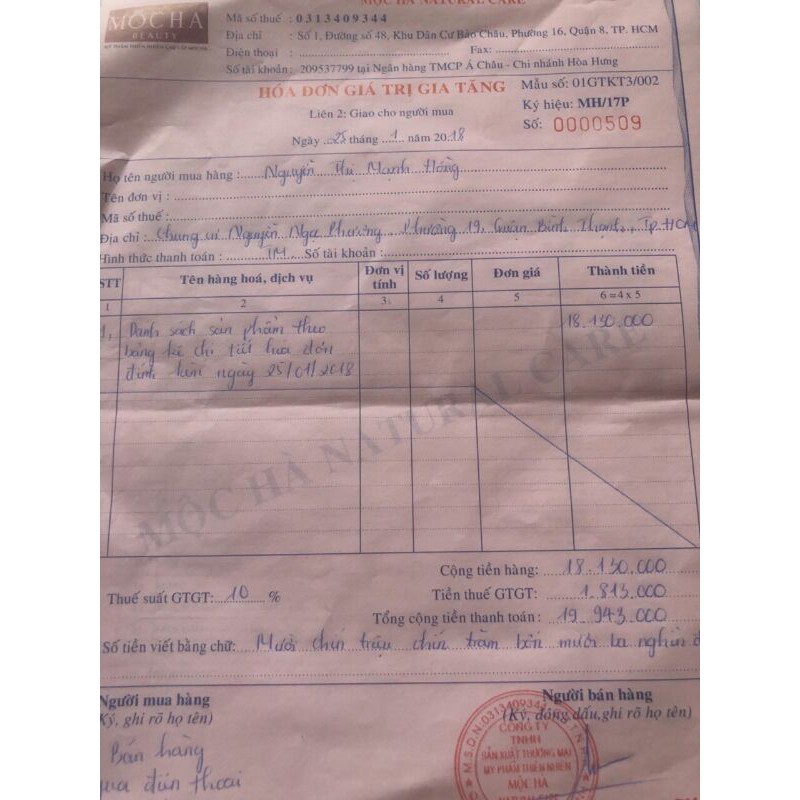 MỘC HÀ NATURAL CARE
MỘC HÀ
BEAUTY
Mã số thuế : 0313409344
Địa chỉ : Số 1, Đường số 48, Khu Dân Cư Bảo Châu, Phường 16, Quận 8, TP. HCM
Điện thoại : Fax:
Số tài khoản: 209537799 tại Ngân hàng TMCP Á Châu - Chi nhánh Hòa Hưng
HÓA ĐƠN GIÁ TRỊ GIA TĂNG
Mẫu số: 01GTKT3/002
Liên 2: Giao cho người mua
Ký hiệu: MH/17P
Ngày 25 tháng 1 năm 2018
Số: 0000509
Họ tên người mua hàng : Nguyễn Thị Mạnh Hồng
Tên đơn vị :
Mã số thuế :
Địa chỉ : Chung cư Nguyễn Ngọc Phương, Phường 19, Quận Bình Thạnh, Tp.HCM
Hình thức thanh toán : TM Số tài khoản :
STT Tên hàng hoá, dịch vụ Đơn vị tính Số lượng Đơn giá Thành tiền
1 2 3 4 5 6 = 4 x 5
1, Danh sách sản phẩm theo 18.130.000
bảng kê chi tiết hóa đơn
đính kèm ngày 25/01/2018
MỘC HÀ NATURAL CARE
Cộng tiền hàng: 18.130.000
Thuế suất GTGT: 10 % Tiền thuế GTGT: 1.813.000
Tổng cộng tiền thanh toán : 19.943.000
Số tiền viết bằng chữ: Mười chín triệu chín trăm bốn mươi ba nghìn đ
Người mua hàng Người bán hàng
(Ký, ghi rõ họ tên) (Ký, đóng dấu, ghi rõ họ tên)
Bán hàng
qua điện thoại
M.S.D.N:0313409344
CÔNG TY
TNHH
SẢN XUẤT THƯƠNG MẠI
MỸ PHẨM THIÊN NHIÊN
MỘC HÀ
NATURAL CARE